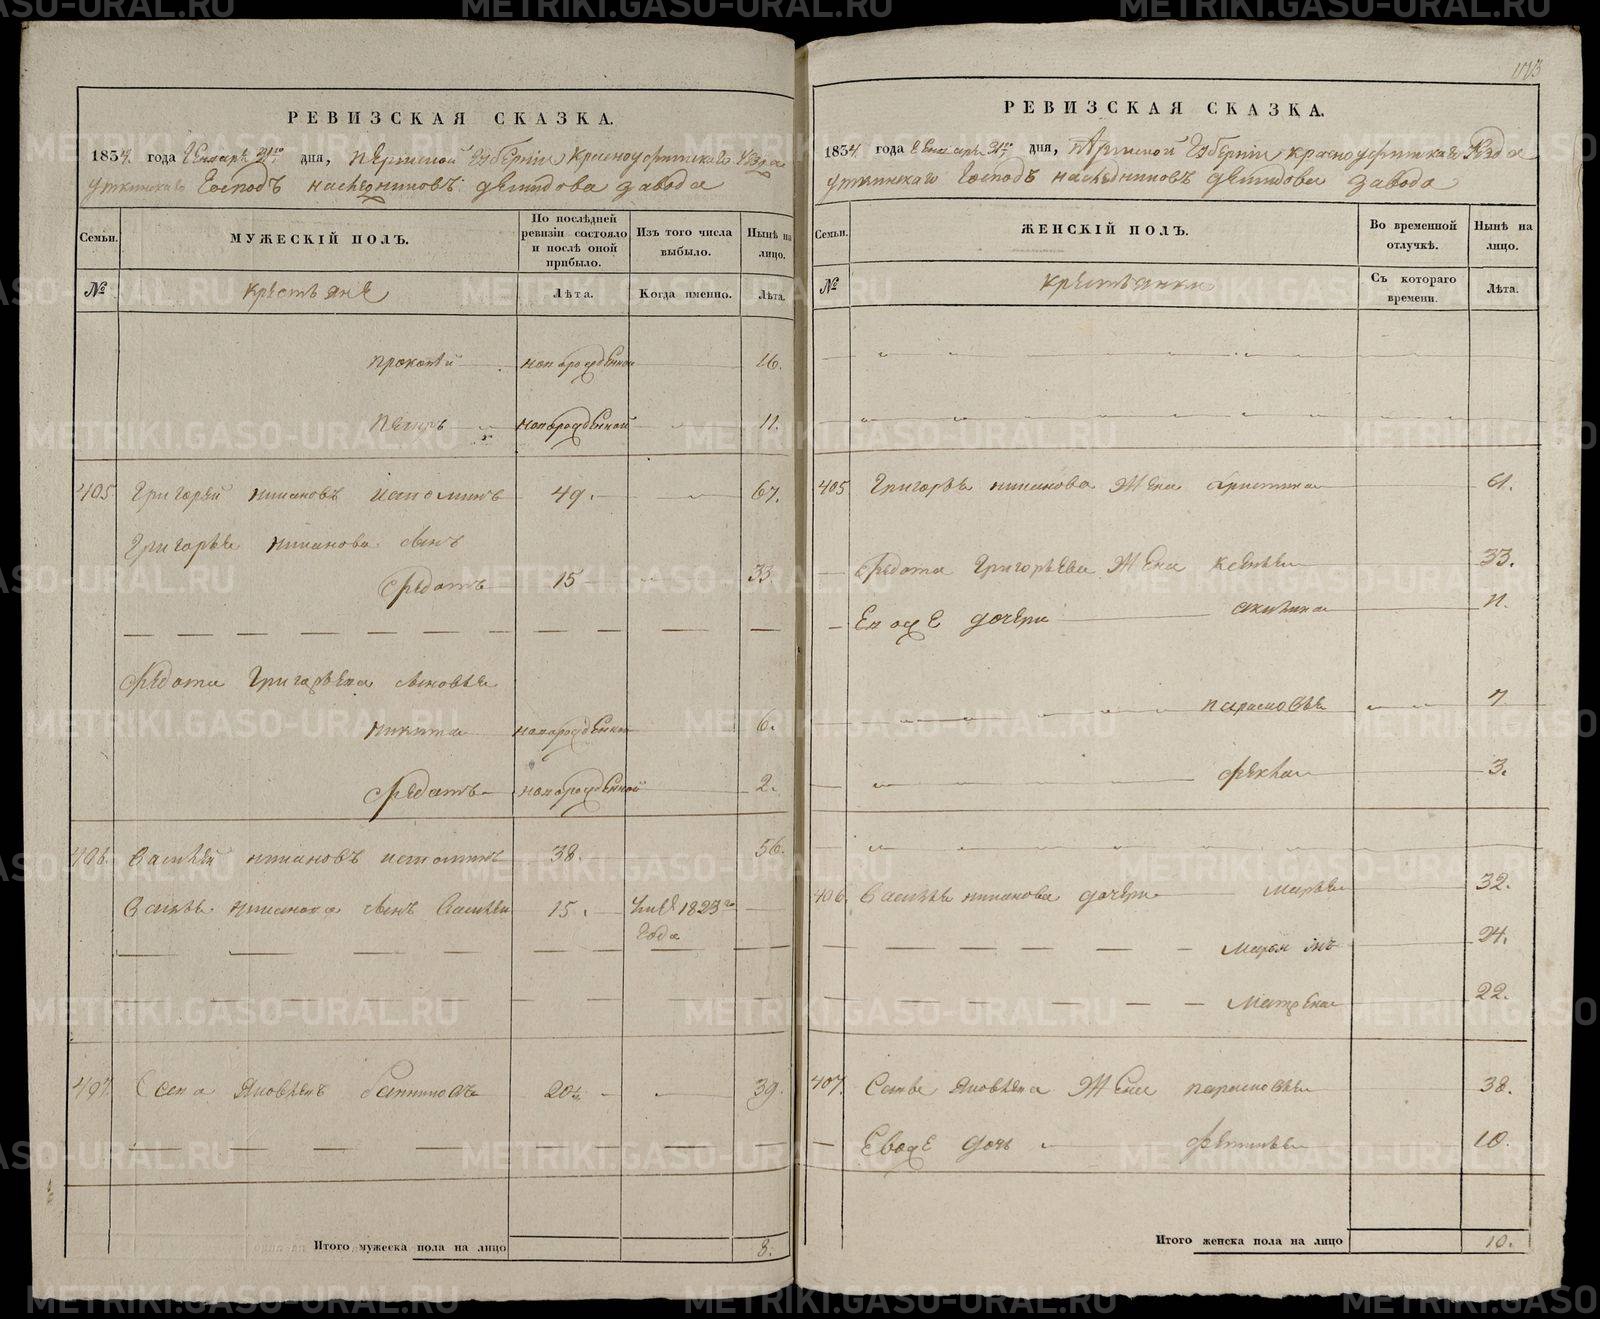 РЕВИЗСКАЯ СКАЗКА.
1834. года Генваря 31го дня, Пермской Губернiи Красноуфимскаго Уезда
Уткинскаго Господъ наследниковъ Демидова завода
Семьи.
МУЖЕСКIЙ ПОЛЪ.
По послѣдней ревизiи состояло и послѣ оной прибыло.
Изъ того числа выбыло.
Нынѣ на лицо.
№
Крестьяне
Лѣта.
Когда именно.
Лѣта.
Прокопей новорожденной 16.
Петръ новорожденной 11.
405 Григорей Ивановъ Истоминъ 49. 67.
Григорья Иванова сынъ
Федотъ 15 33.
Федота Григорьева сыновья
Никита новорожденной 6.
Федотъ новорожденной 2.
406. Василей Ивановъ Истоминъ 38. 56.
Василья Иванова сынъ Василей 15. 1823го
года
407. Яковлевъ 20 39.
Итого мужеска пола на лицо 8.
113
РЕВИЗСКАЯ СКАЗКА.
1834. года Генваря 31го дня, Пермской Губернiи Красноуфимскаго Уезда
Уткинскаго Господъ наследниковъ Демидова завода
Семьи.
ЖЕНСКIЙ ПОЛЪ.
Во временной отлучкѣ.
Нынѣ на лицо.
№
Крестьянки
Съ котораго времени.
Лѣта.
405 Григорья Иванова Жена Христина 61.
Федота Григорьева Жена Ксенья 33.
Ево же дочери Акилина 11.
Парасковья 7
Фекла 3.
406. Василья Иванова дочери Марья 32.
24.
Матрена 22.
407. Яковлева Жена Парасковья 38.
Ево же дочь Фетинья 10.
Итого женска пола на лицо 10.
METRIKI.GASO-URAL.RU